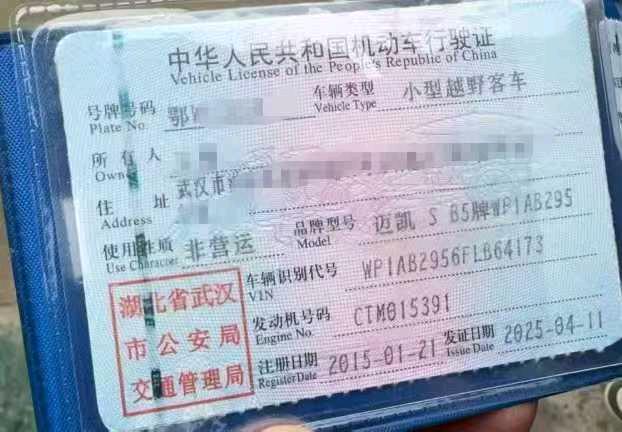 中华人民共和国机动车行驶证
Vehicle License of the People's Republic of China
号牌号码 鄂W 车辆类型 小型越野客车
Plate No. Vehicle Type
所有人
Owner
住址 武汉市
Address
使用性质 非营运 品牌型号 迈凯 S B5牌WP1AB295
Use Character Model
车辆识别代号 WP1AB2956FLB64173
VIN
湖北省武汉
市公安局
交通管理局
发动机号码 CTM015391
Engine No.
注册日期 2015-01-21 发证日期 2025-04-11
Register Date Issue Date